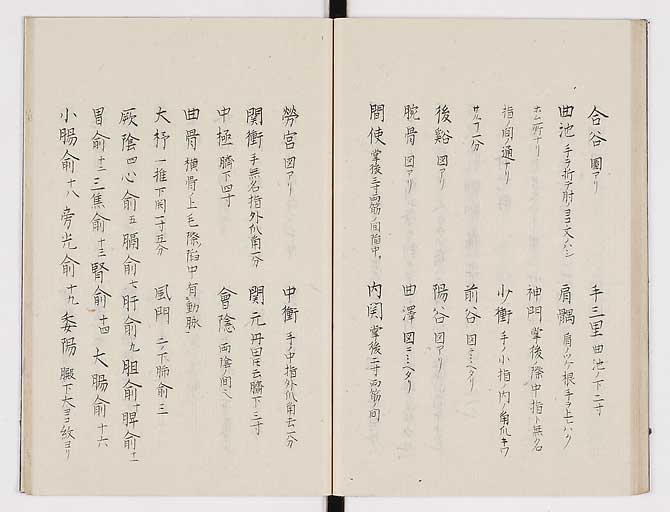 合谷 圖アリ 手三里 曲池ノ下二寸
曲池 手ヲ折テ肘ノヨコ文ハシ 肩髃 肩ノツケ根手ヲ上ヒラク
神門 掌後ノ際中指ト無名
指ノ間ノ通ナリ 少衝 手ノ小指ノ内ノ角爪キワ
サルヿ一分 前谷 図ニミヘタリ
後谿 図アリ 陽谷 図アリ
腕骨 図アリ 曲澤 図ニミヘタリ
間使 掌後三寸両筋ノ間陷中 内関 掌後二寸両筋ノ間
勞宮 図アリ 中衝 手ノ中指外爪角去一分
関衝 手無名指外爪角一分 関元 丹田ト云臍下三寸
中極 臍下四寸 會陰 両陰ノ間
曲骨 横骨ノ上毛際陷中有動脉
大杼 一推下間一寸五分 風門 二ノ下 肺俞 三
厥陰 四 心俞 五 膈俞 七 肝俞 九 胆俞 十 脾俞 十一
胃俞 十二 三焦俞 十三 腎俞 十四 大腸俞 十六
小腸俞 十八 旁光俞 十九 委陽 膕下大ヨコ紋ヨリ